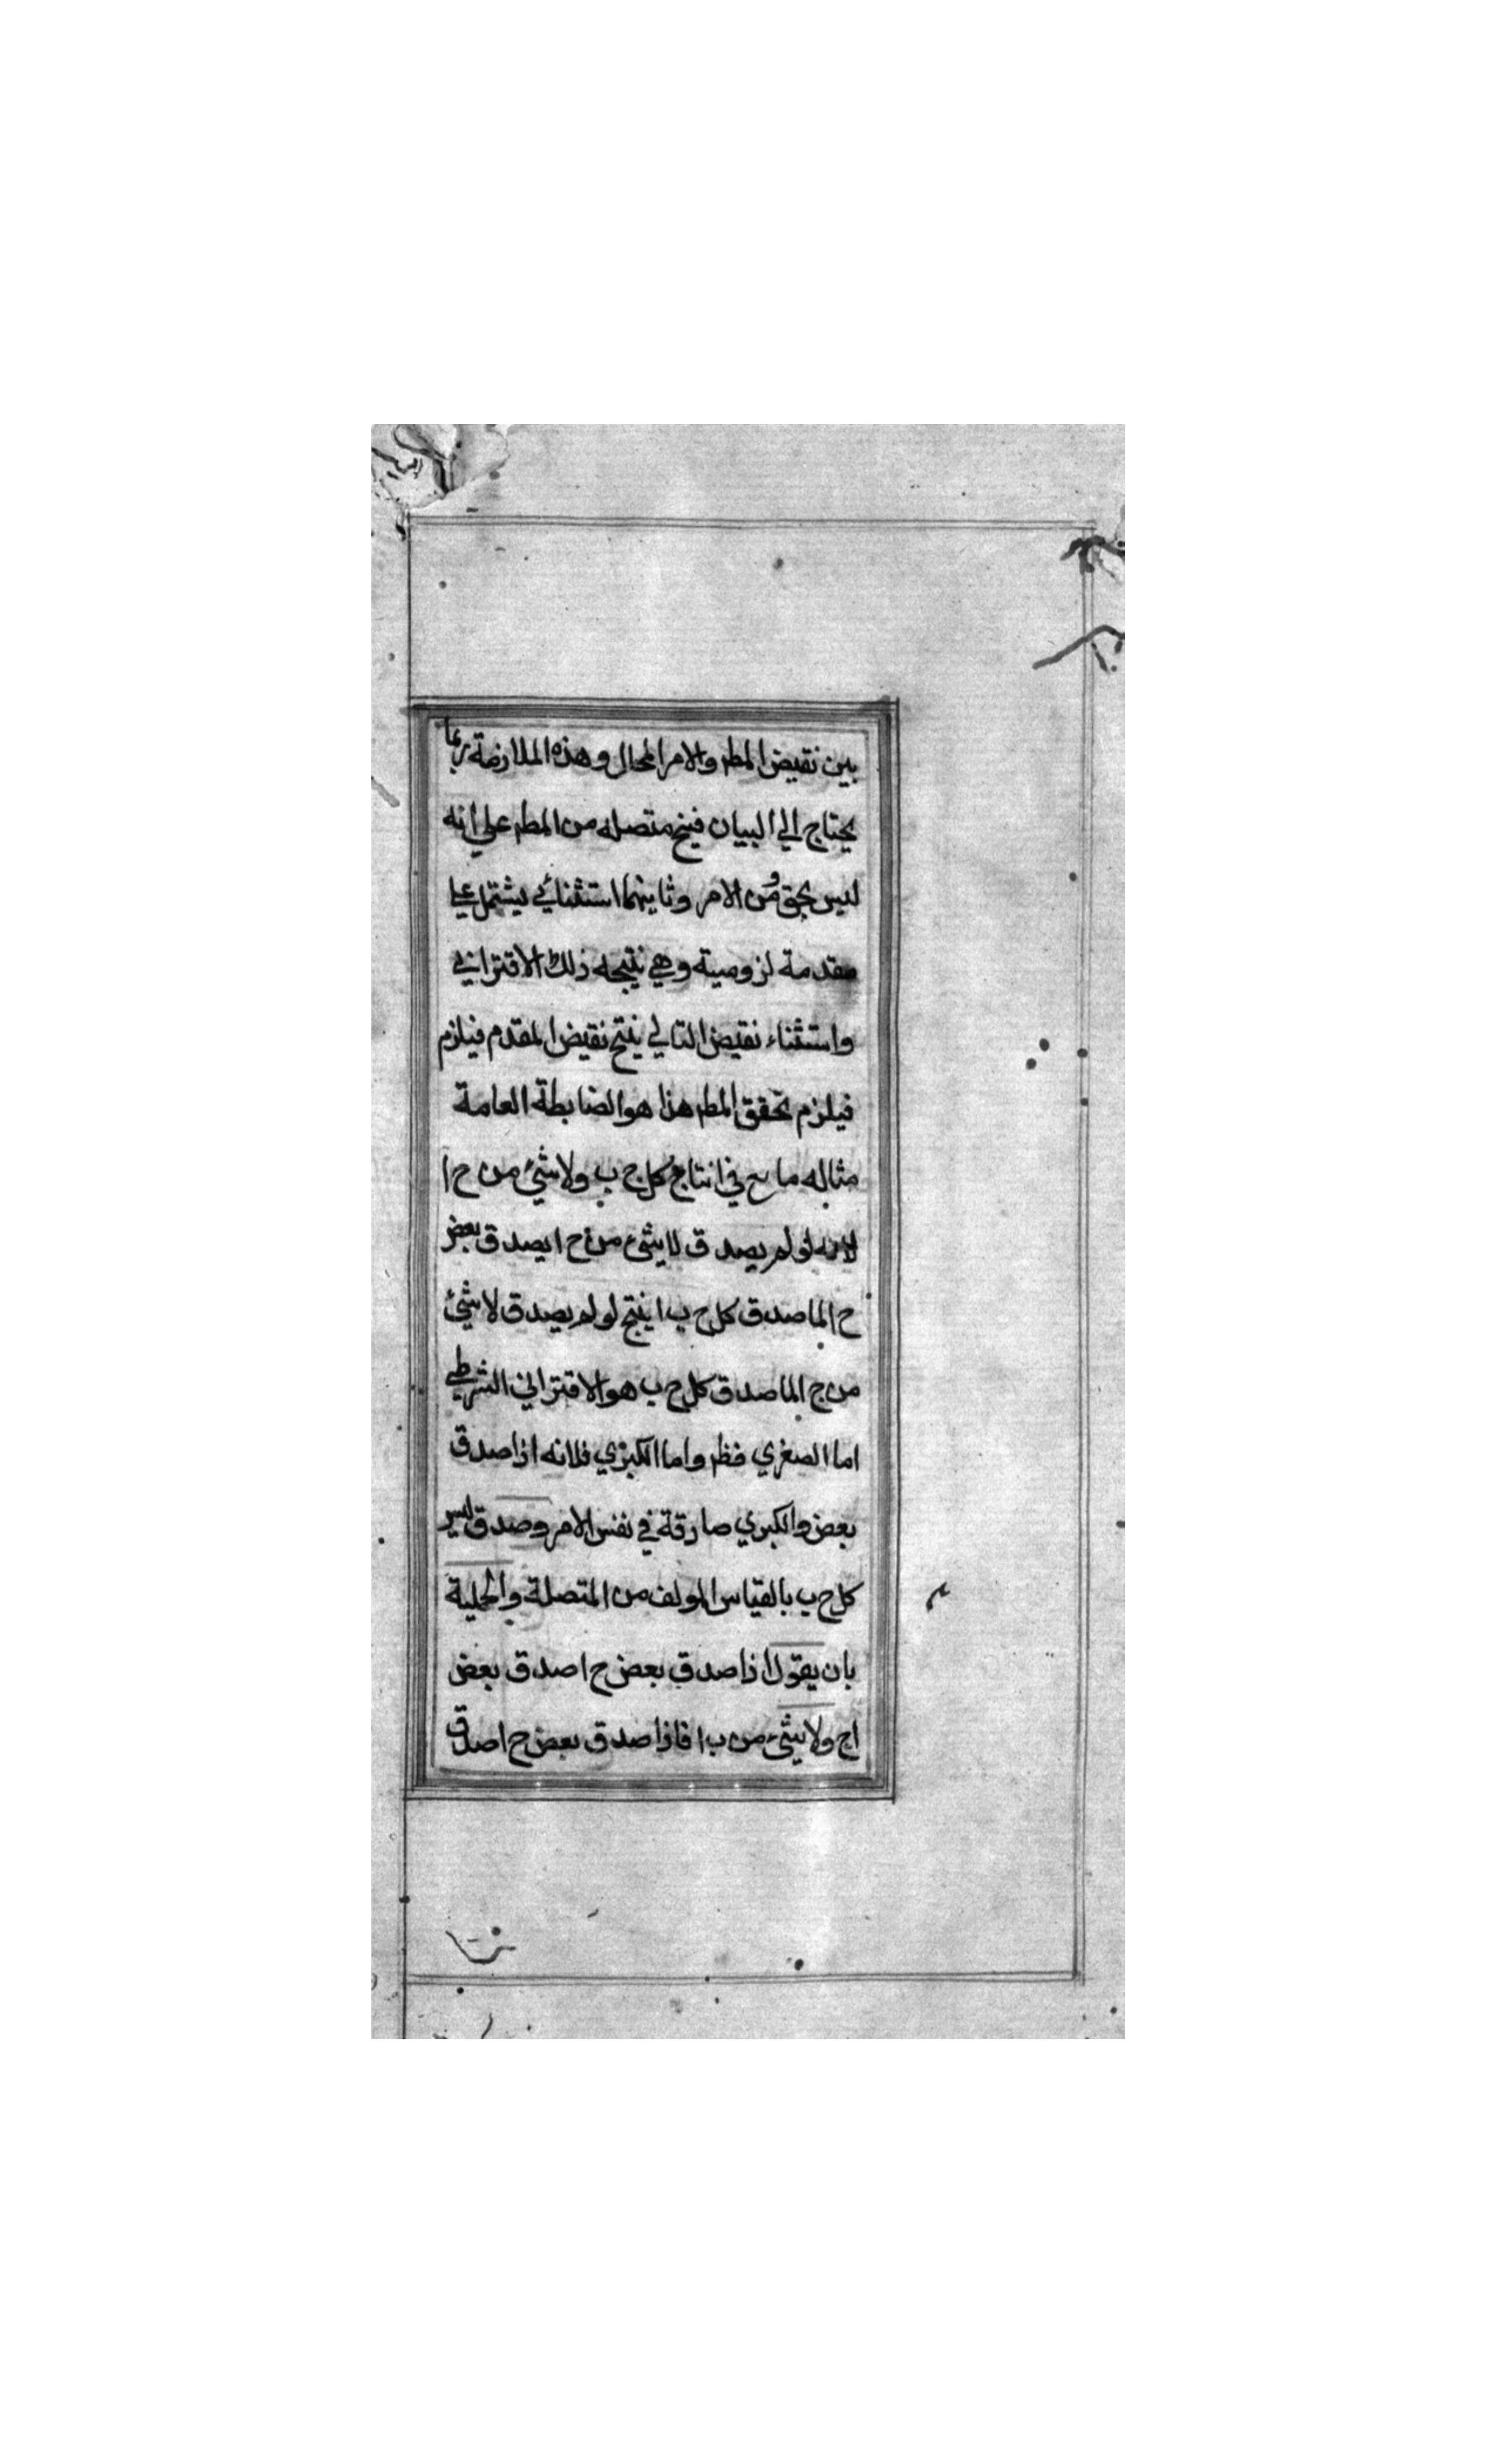 بين نقيض المط والامر المحال وهذه الملازمة ربما
يحتاج الي البيان فينتج متصله من المط علي انه
ليس بحق من الامر وثاينهما استثنائي يشتمل علي
مقدمة لزومية وهي نتيجه ذلك الاقتراني
واستثناء نقيض التالي ينتج نقيض المقدم فيلزم
فيلزم تحقق المط هذا هو الضابطة العامة
مثاله ما في انتاج كل ج ب ولا شئ من ح ا
لانه لو لم يصدق لا شئ من ح ا يصدق بعض
ح الما صدق كل ح ب ا ينتج لو لم يصدق لا شئ
من ج الما صدق كل ح ب هو الاقتراني الشرطي
اما الصغري فظ واما الكبري فلانه اذا صدق
بعض والكبري صادقة في نفس الامر وصدق ليس
كل ح ب بالقياس المولف من المتصلة والحملية
بان يقول اذا صدق بعض ح ا صدق بعض
ا ج ولا شئ من ب ا فاذا صدق بعض ح ا صدق